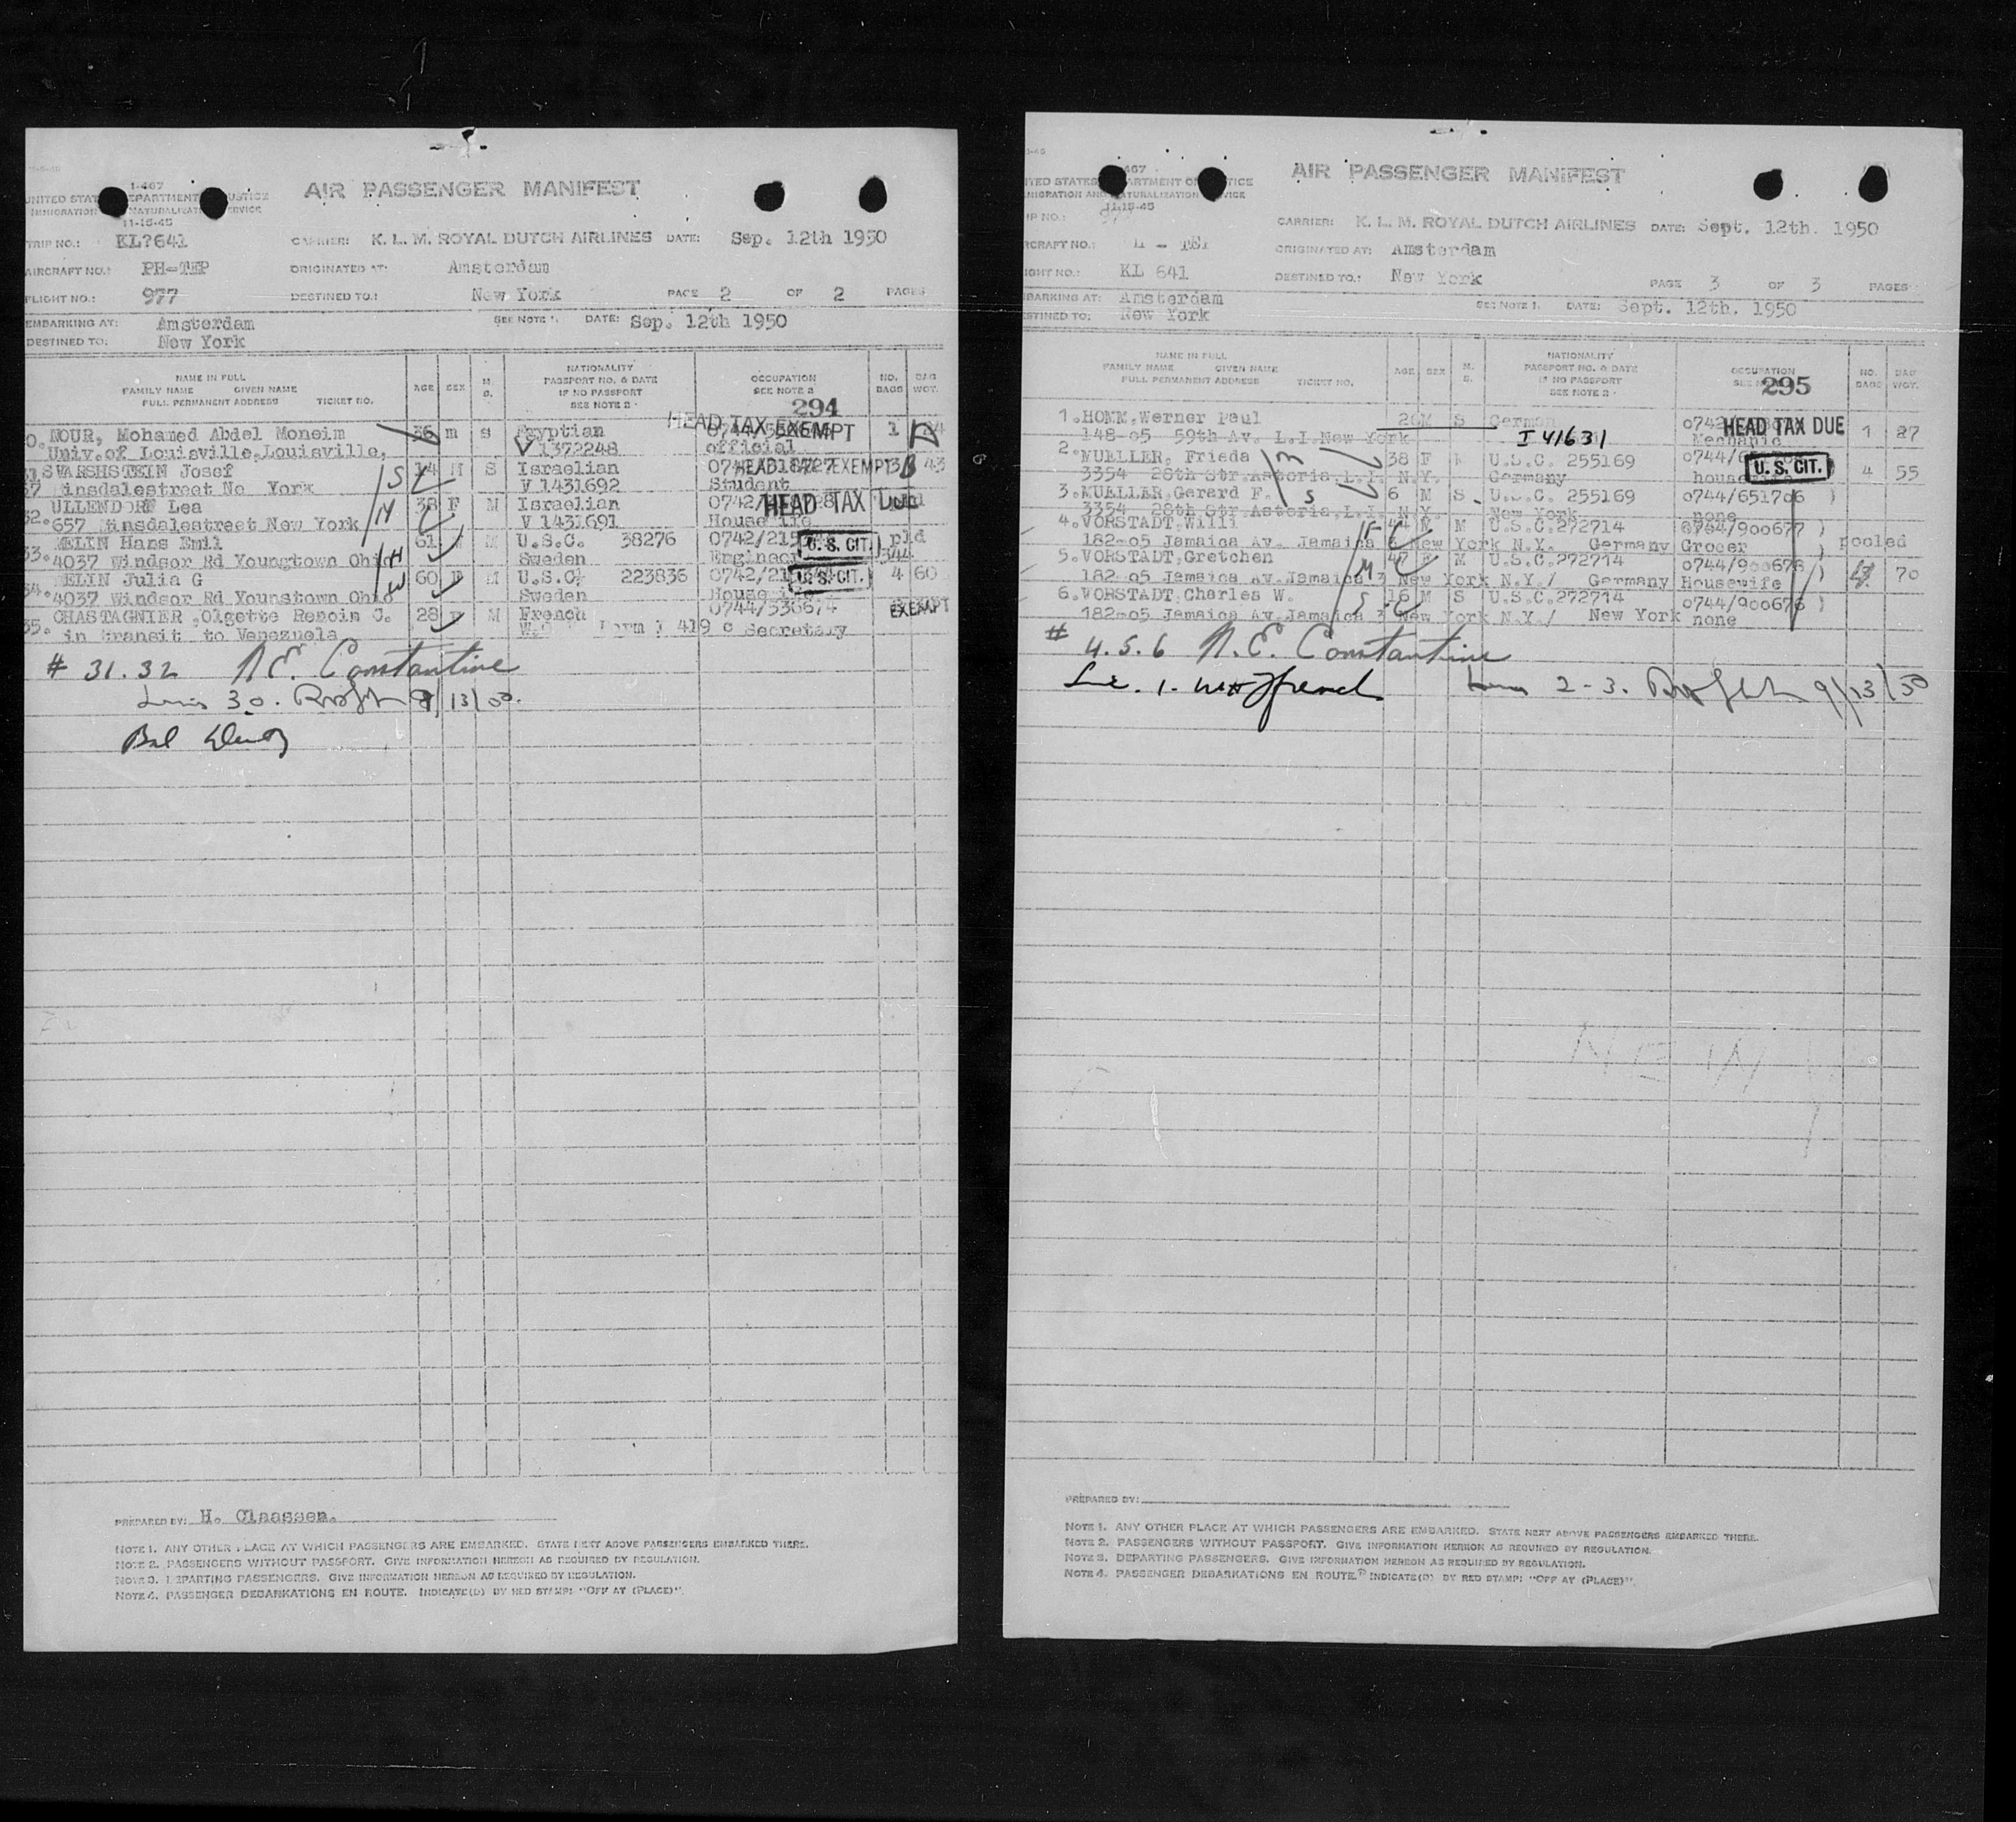 I-467
AIR PASSENGER MANIFEST
11-15-45
TRIP NO.: KL?641 CARRIER: K. L. M. ROYAL DUTCH AIRLINES DATE: Sep. 12th 1950
AIRCRAFT NO.: PH-TEP ORIGINATED AT: Amsterdam
FLIGHT NO.: 977 DESTINED TO.: New York PAGE 2 OF 2 PAGES
EMBARKING AT: Amsterdam SEE NOTE 1. DATE: Sep. 12th 1950
DESTINED TO: New York
NAME IN FULL
FAMILY NAME GIVEN NAME
FULL PERMANENT ADDRESS TICKET NO.
AGE SEX M. S.
NATIONALITY
PASSPORT NO. & DATE
IF NO PASSPORT
SEE NOTE 2
OCCUPATION
SEE NOTE 2
NO. BAGS BAG WGT.
294
HEAD TAX EXEMPT
NOUR, Mohamed Abdel Moneim 36 m s Egyptian 1
Univ.of Louisville,Louisville, V 1372248 official
SWARSHSTEIN Josef S 14 M S Israelian HEAD TAX EXEMPT 3 43
insdalestreet New York V 1431692 Student
ULLENDORF Lea 38 F M Israelian HEAD TAX DUE
32. 657 insdalestreet New York V 1431691
MELIN Hans Emil 61 M U.S.C. 38276 U. S. CIT. pld
33. 4037 Windsor Rd Youngtown Ohio H Sweden Engineer
MELIN Julia G 60 F M U.S.C. 223836 U. S. CIT. 4 60
34. 4037 Windsor Rd Younstown Ohio W Sweden
CHASTAGNIER ,Olgette Renoim C. 28 F M French 0744/336674 EXEMPT
35. in transit to Venezuela 419 c Secretary
# 31. 32 N.E. Constantine
30. 9/13/50.
PREPARED BY: H. Claassen.
NOTE 1. ANY OTHER PLACE AT WHICH PASSENGERS ARE EMBARKED. STATE NEXT ABOVE PASSENGERS EMBARKED THERE.
NOTE 2. PASSENGERS WITHOUT PASSPORT. GIVE INFORMATION HEREON AS REQUIRED BY REGULATION.
NOTE 3. DEPARTING PASSENGERS. GIVE INFORMATION HEREON AS REQUIRED BY REGULATION.
NOTE 4. PASSENGER DEBARKATIONS EN ROUTE. INDICATE(D) BY RED STAMP: "OFF AT (PLACE)".
AIR PASSENGER MANIFEST
11-15-45
CARRIER: K. L. M. ROYAL DUTCH AIRLINES DATE: Sept. 12th. 1950
ORIGINATED AT: Amsterdam
KL 641 DESTINED TO.: New York PAGE 3 OF 3 PAGES
Amsterdam SEE NOTE 1. DATE: Sept. 12th. 1950
New York
NAME IN FULL
FAMILY NAME GIVEN NAME
FULL PERMANENT ADDRESS TICKET NO.
AGE SEX M. S.
NATIONALITY
PASSPORT NO. & DATE
IF NO PASSPORT
SEE NOTE 2
OCCUPATION
NO. BAGS BAG WGT.
295
1. HOMM,Werner Paul 26 M S German HEAD TAX DUE 1 27
148-05 59th Av. L.I.New York I 41631 Mechanic
2. MUELLER, Frieda 38 F M U.S.C. 255169 U. S. CIT. 4 55
3354 28th Str.Astoria,L.I. N.Y. Germany
3. MUELLER,Gerard F. S 6 M S U.S.C. 255169 0744/651706 )
3354 28th Str.Astoria,L.I. N.Y. New York none
4. VORSTADT,Willi M U.S.C.272714 0744/900677 )
182-05 Jamaica Av. Jamaica 3 New York N.Y. Germany Grocer ) pooled
5. VORSTADT,Gretchen 47 F M U.S.C.272714 0744/900678 )
182-05 Jamaica Av.Jamaica 3 New York N.Y./ Germany Housewife ) 70
6. VORSTADT,Charles W. S 16 M S U.S.C.272714 0744/900676 )
182-05 Jamaica Av.Jamaica 3 New York N.Y./ New York none
# 4. 5. 6 N. E. Constantine
1. 2-3. 9/13/50
PREPARED BY:
NOTE 1. ANY OTHER PLACE AT WHICH PASSENGERS ARE EMBARKED. STATE NEXT ABOVE PASSENGERS EMBARKED THERE.
NOTE 2. PASSENGERS WITHOUT PASSPORT. GIVE INFORMATION HEREON AS REQUIRED BY REGULATION.
NOTE 3. DEPARTING PASSENGERS. GIVE INFORMATION HEREON AS REQUIRED BY REGULATION.
NOTE 4. PASSENGER DEBARKATIONS EN ROUTE. INDICATE(D) BY RED STAMP: "OFF AT (PLACE)".